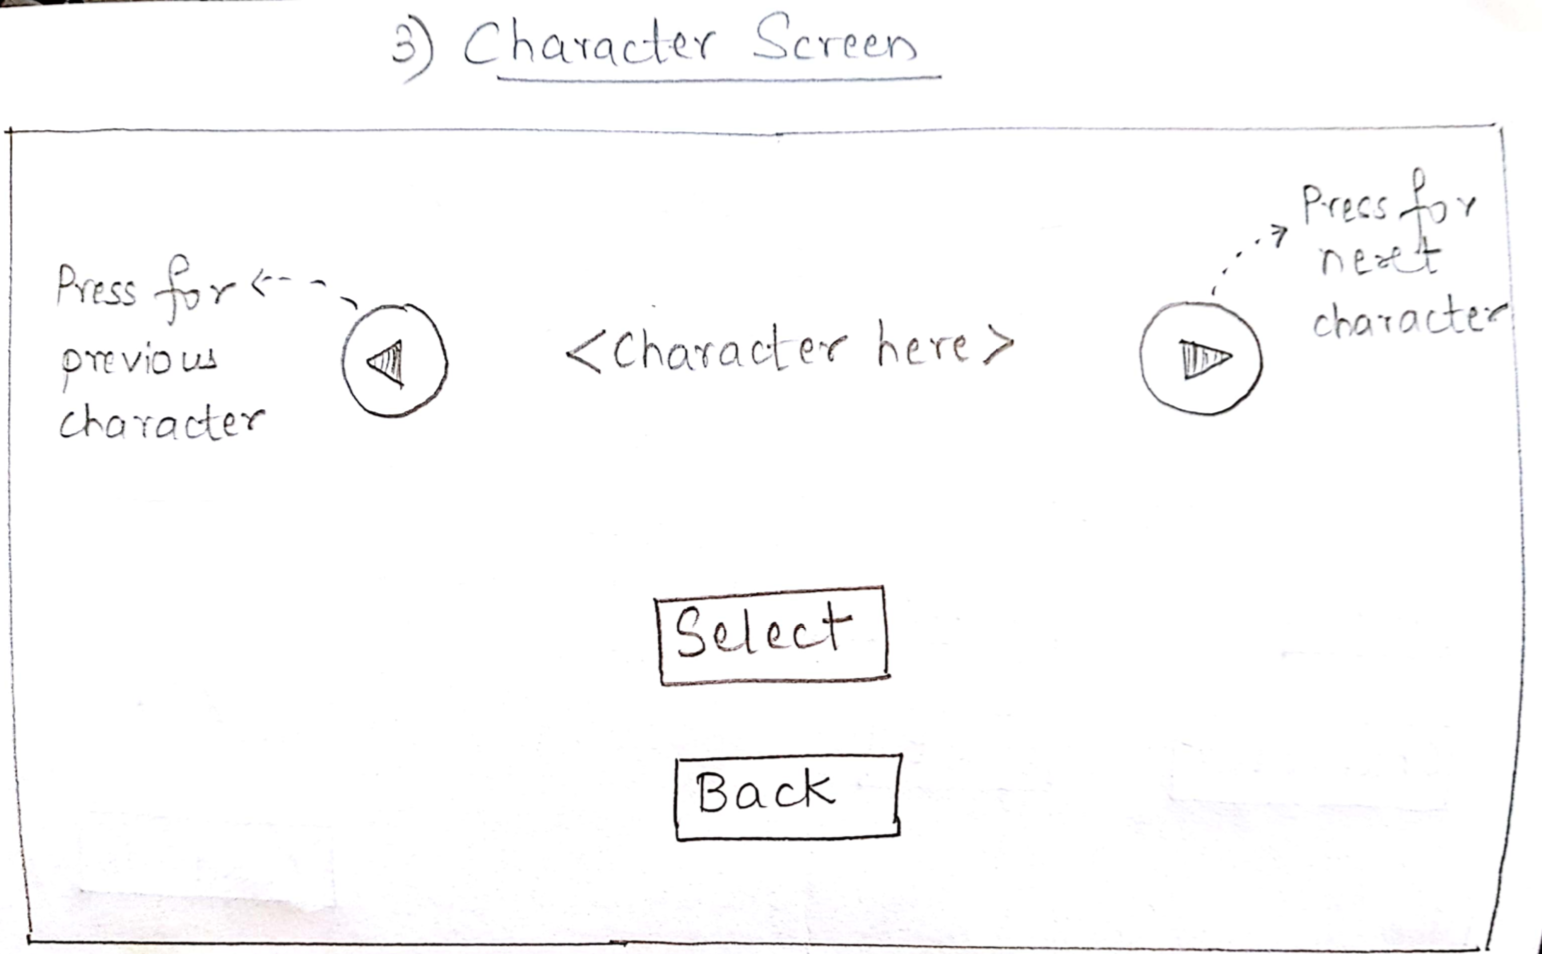 3) Character Screen
Press for
previous
character
<Character here>
Press for
next
character
Select
Back